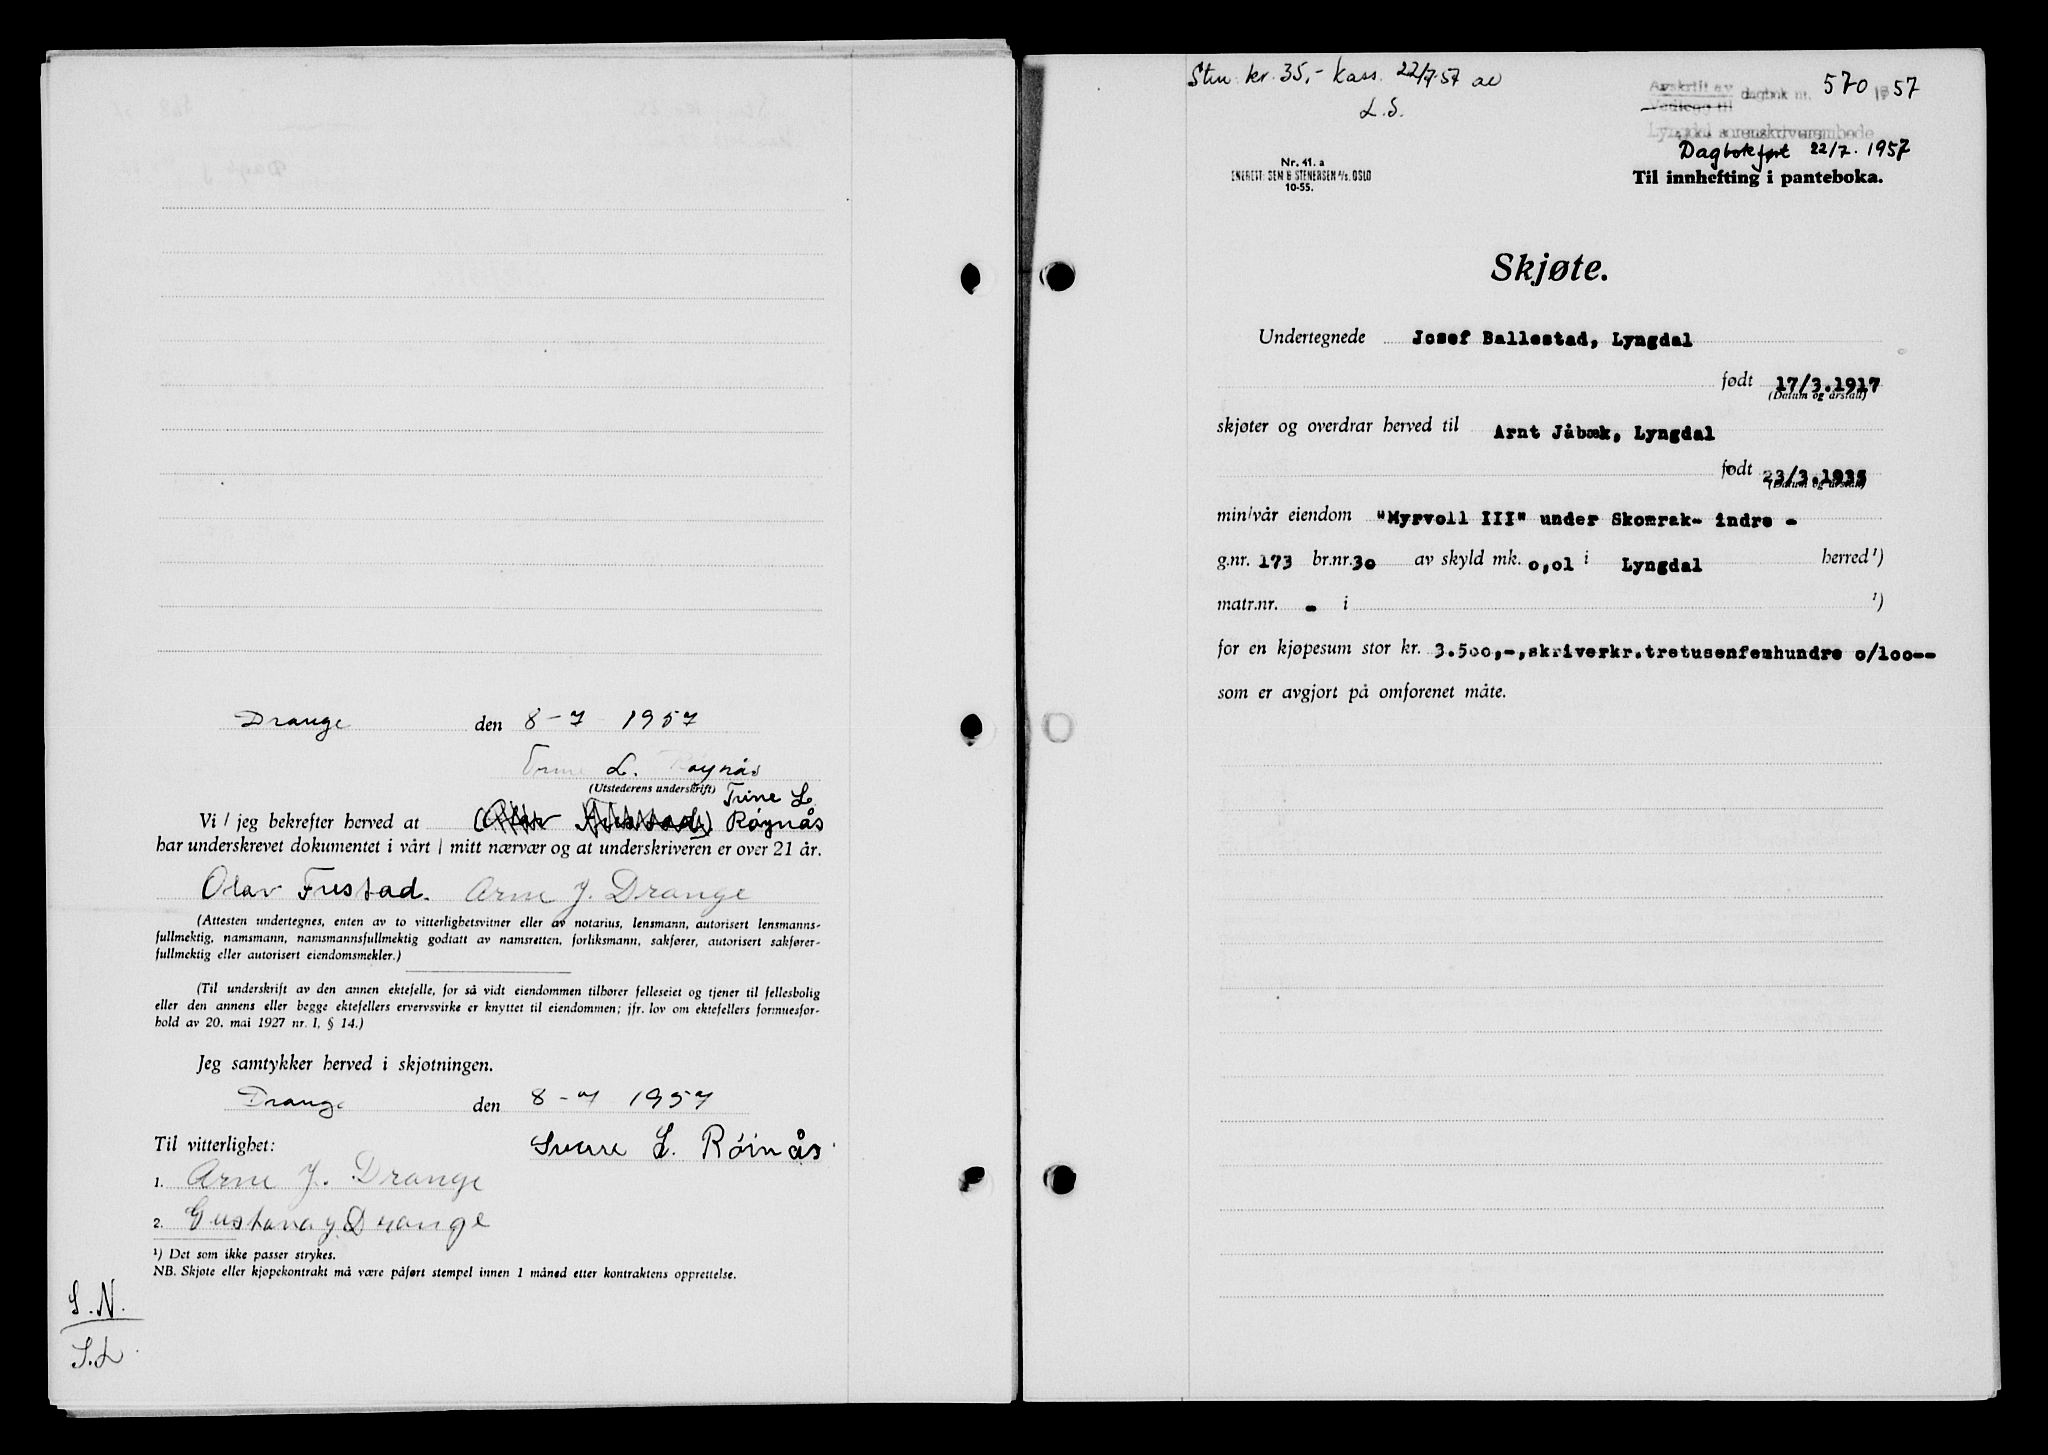 Drange den 8-7 1957
L. Røynås
(Utstederens underskrift) Trine L.
Vi / jeg bekrefter herved at (Olav Frestad) Røynås
har underskrevet dokumentet i vårt / mitt nærvær og at underskriveren er over 21 år.
Olav Frestad. Arne J. Drange
(Attesten undertegnes, enten av to vitterlighetsvitner eller av notarius, lensmann, autorisert lensmanns-
fullmektig, namsmann, namsmannsfullmektig godtatt av namsretten, forliksmann, sakfører, autorisert sakfører-
fullmektig eller autorisert eiendomsmekler.)
(Til underskrift av den annen ektefelle, for så vidt eiendommen tilhører felleseiet og tjener til fellesbolig
eller den annens eller begge ektefellers ervervsvirke er knyttet til eiendommen; jfr. lov om ektefellers formuesfor-
hold av 20. mai 1927 nr. 1, § 14.)
Jeg samtykker herved i skjøtningen.
Drange den 8-7 1957
Til vitterlighet: Sverre L. Röinås
1. Arne J. Drange
2. Gustava J. Drange
¹) Det som ikke passer strykes.
NB. Skjøte eller kjøpekontrakt må være påført stempel innen 1 måned etter kontraktens opprettelse.
S.N.
S.L.
Stm kr. 35,- kass. 22/7-57 ae
L.S.
Avskrift av
Vedlegg til dagbok nr. 570 19 57
Lyngdal sorenskriverembede
Dagbokført 22/7. 1957
Nr. 41. a
ENERETT: SEM & STENERSEN A/S. OSLO
10-55.
Til innhefting i panteboka.
Skjøte.
Undertegnede Josef Ballestad, Lyngdal
født 17/3.1917
(Datum og årstall)
skjøter og overdrar herved til Arnt Jåbæk, Lyngdal
født 23/3.1935
(Datum og årstall)
min/vår eiendom "Myrvoll III" under Skomrak- indre -
g.nr. 173 br.nr. 30 av skyld mk. 0,01 i Lyngdal herred ¹)
matr.nr. - i ¹)
for en kjøpesum stor kr. 3.500,-,skriverkr.tretusenfemhundre 0/100--
som er avgjort på omforenet måte.